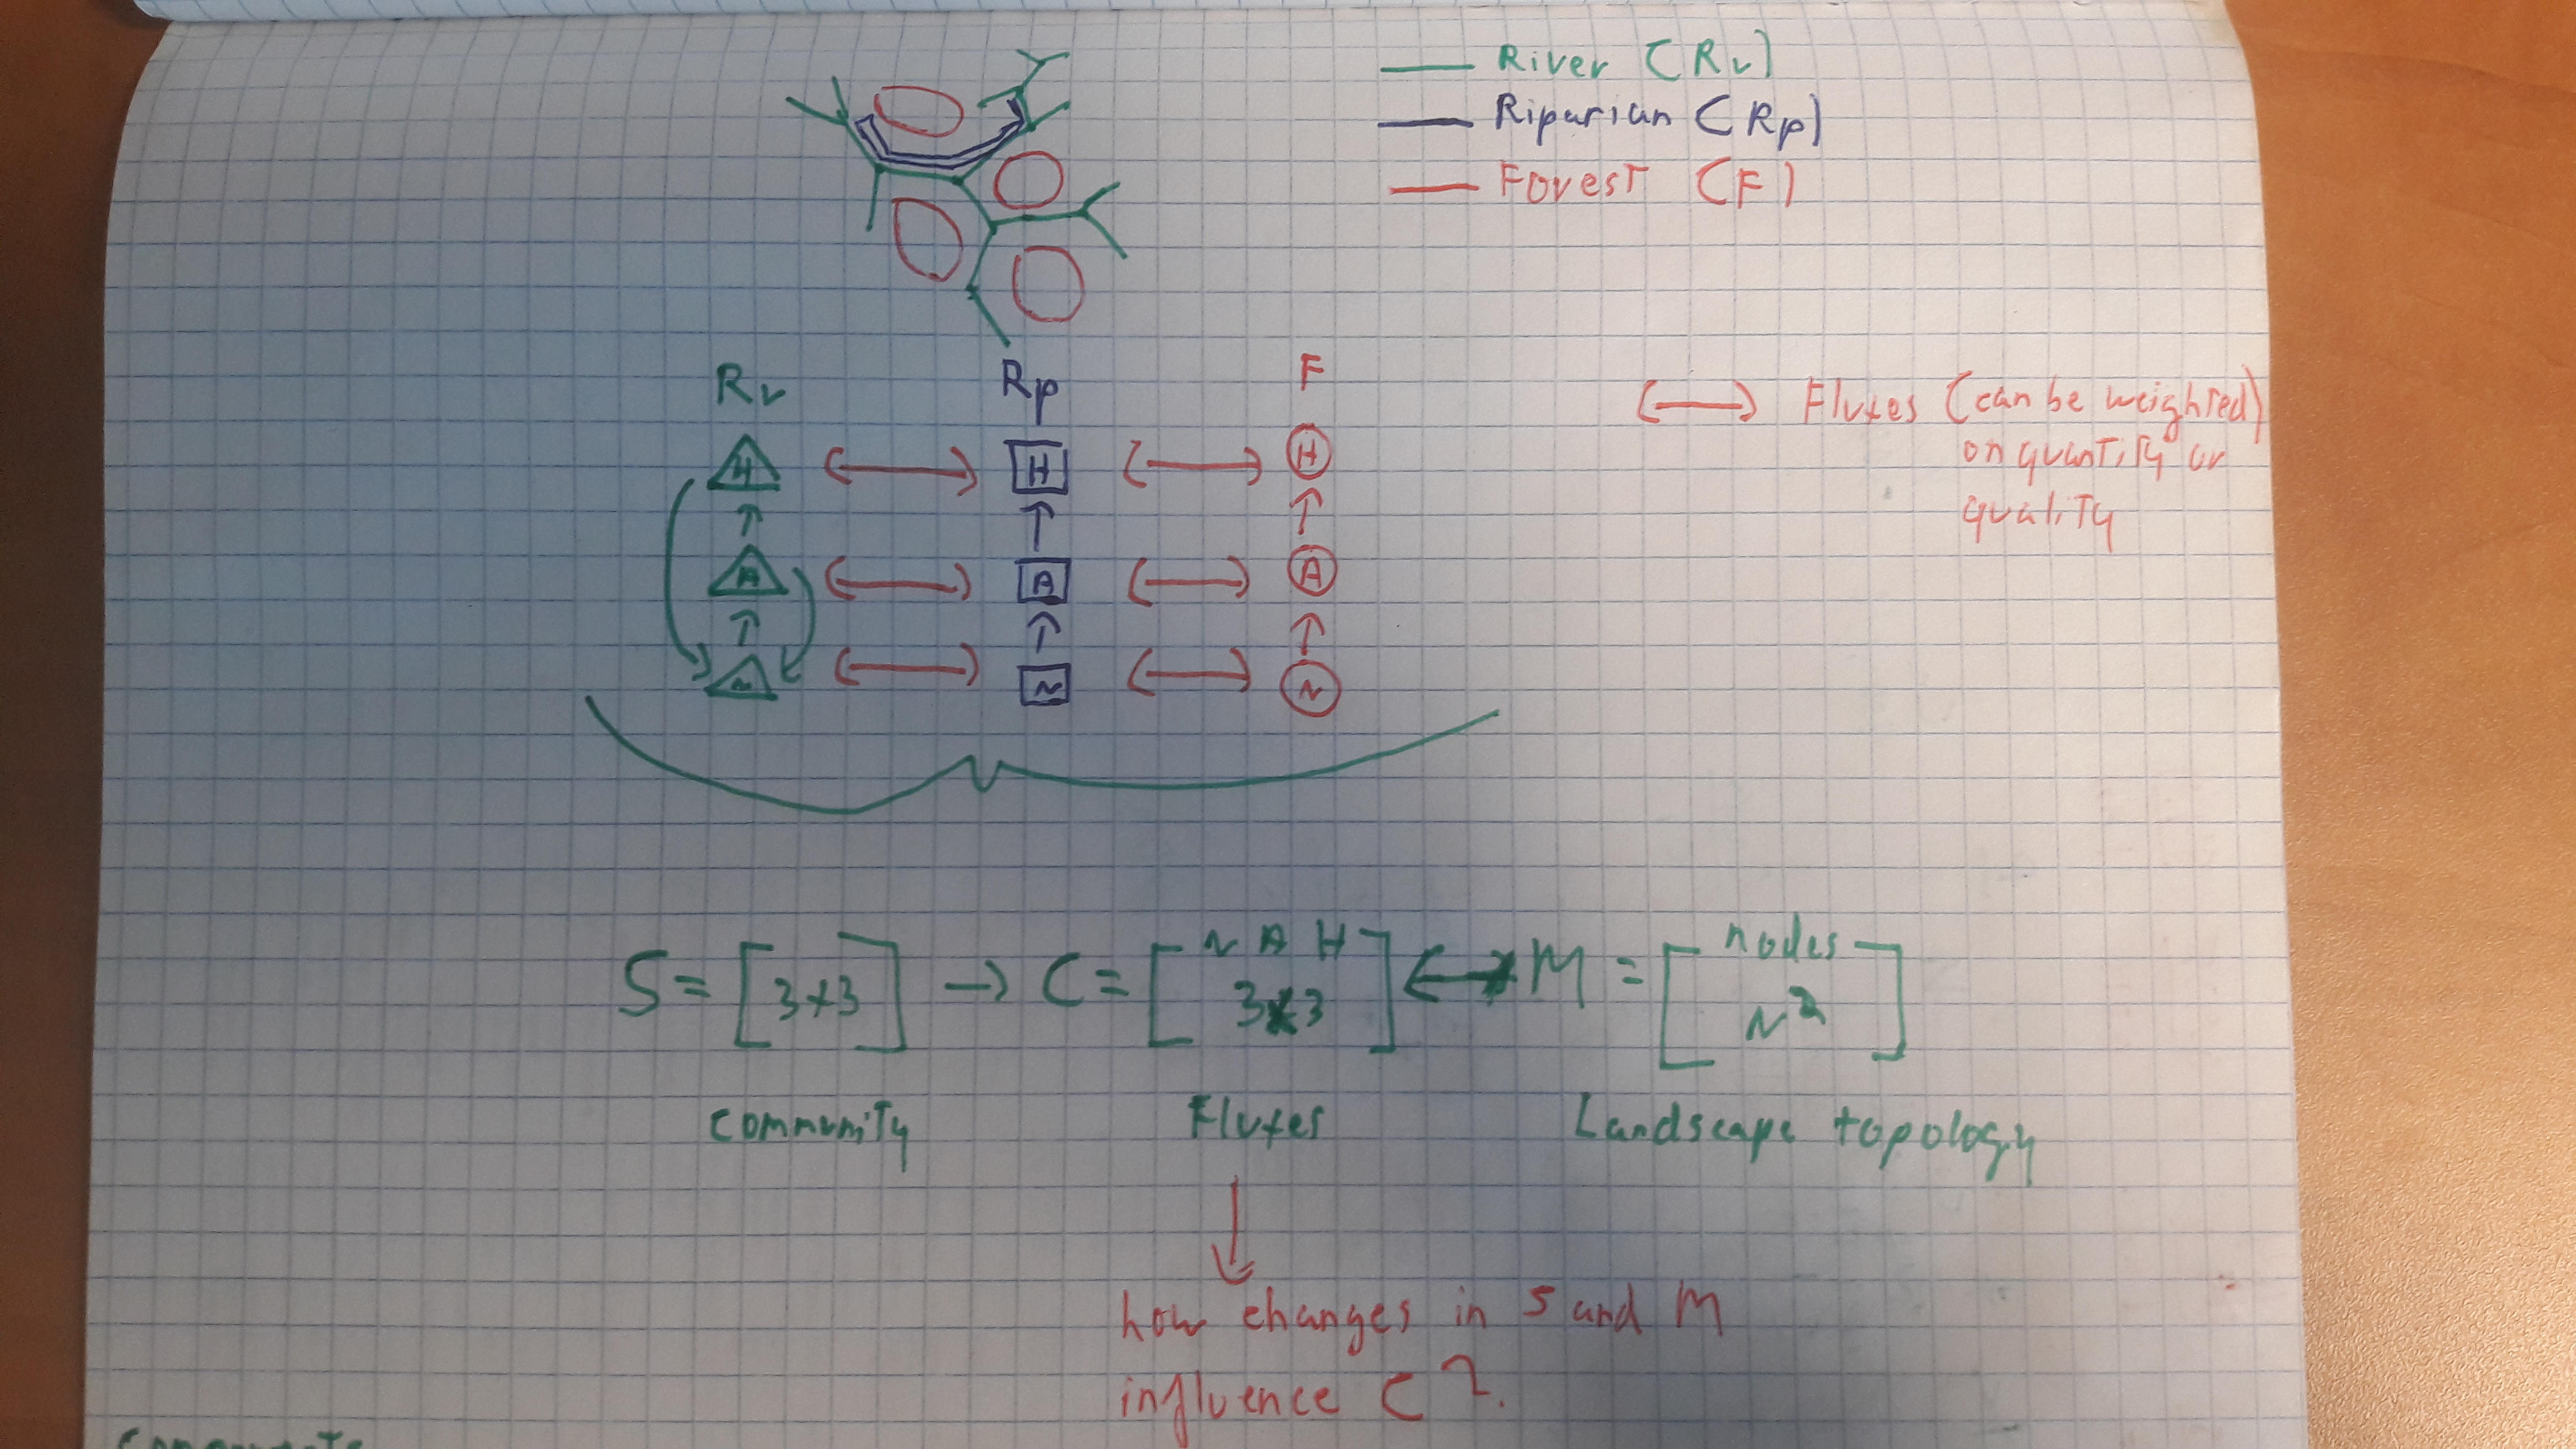 River (Rv)
Riparian (Rp)
Forest (F)
Rv Rp F
Fluxes (can be weighted)
on quantity or
quality
H H H
A A A
N N N
S = [3x3] → C = [N A H 3x3] ↔ M = [nodes N²]
community Fluxes Landscape topology
how changes in S and M
influence C ?